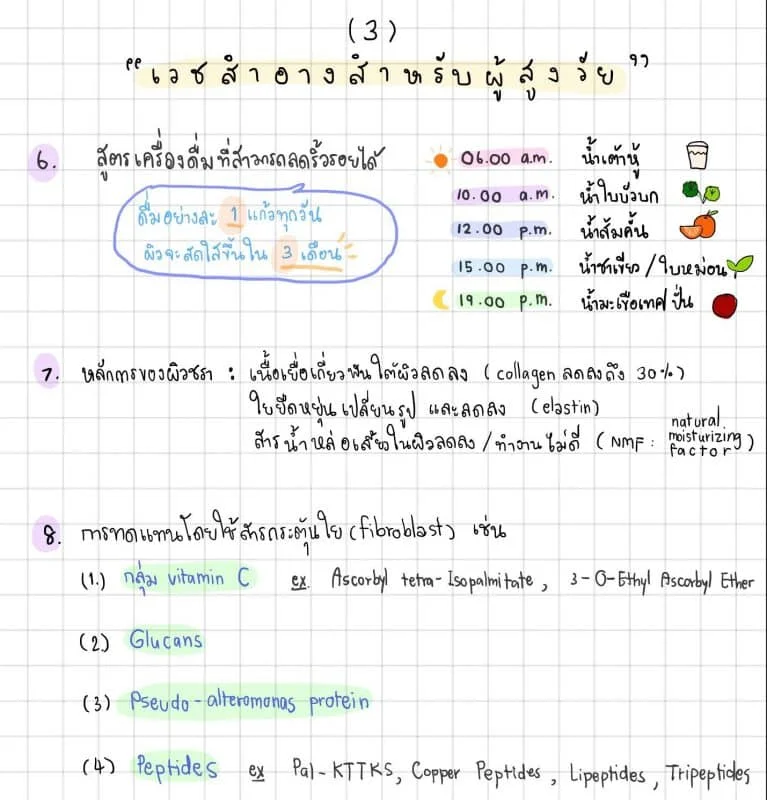 (3)
“เวชสำอางสำหรับผู้สูงวัย”
6. สูตรเครื่องดื่มที่สามารถลดริ้วรอยได้
ดื่มอย่างละ 1 แก้วทุกวัน
ผิวจะสดใสขึ้นใน 3 เดือน
06.00 a.m. น้ำเต้าหู้
10.00 a.m. น้ำใบบัวบก
12.00 p.m. น้ำส้มคั้น
15.00 p.m. น้ำชาเขียว / ใบหม่อน
19.00 p.m. น้ำมะเขือเทศ ปั่น
7. หลักการของผิวชรา : เนื้อเยื่อเกี่ยวพันใต้ผิวลดลง (collagen ลดลงถึง 30%)
ใยยืดหยุ่นเปลี่ยนรูป และลดลง (elastin)
สารน้ำหล่อเลี้ยงในผิวลดลง / ทำงานไม่ดี (NMF : natural moisturizing factor)
8. การทดแทนโดยใช้สารกระตุ้นใย (fibroblast) เช่น
(1.) กลุ่ม vitamin C ex. Ascorbyl tetra-Isopalmitate, 3-O-Ethyl Ascorbyl Ether
(2) Glucans
(3) Pseudo-alteromonas protein
(4) Peptides ex Pal-KTTKS, Copper Peptides, Lipeptides, Tripeptides